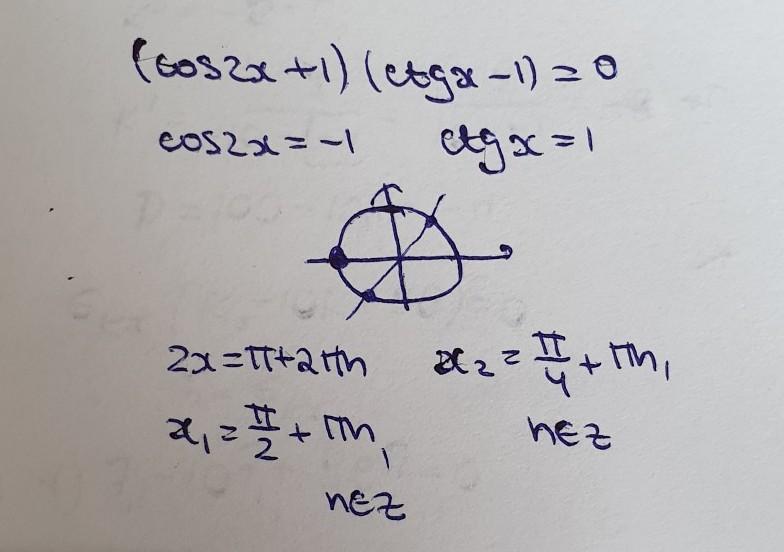 (cos2x+1)(ctgx-1)=0
cos2x=-1 ctgx=1
2x=π+2πn x₂=π/4+πn,
x₁=π/2+πn, n∈z
n∈z